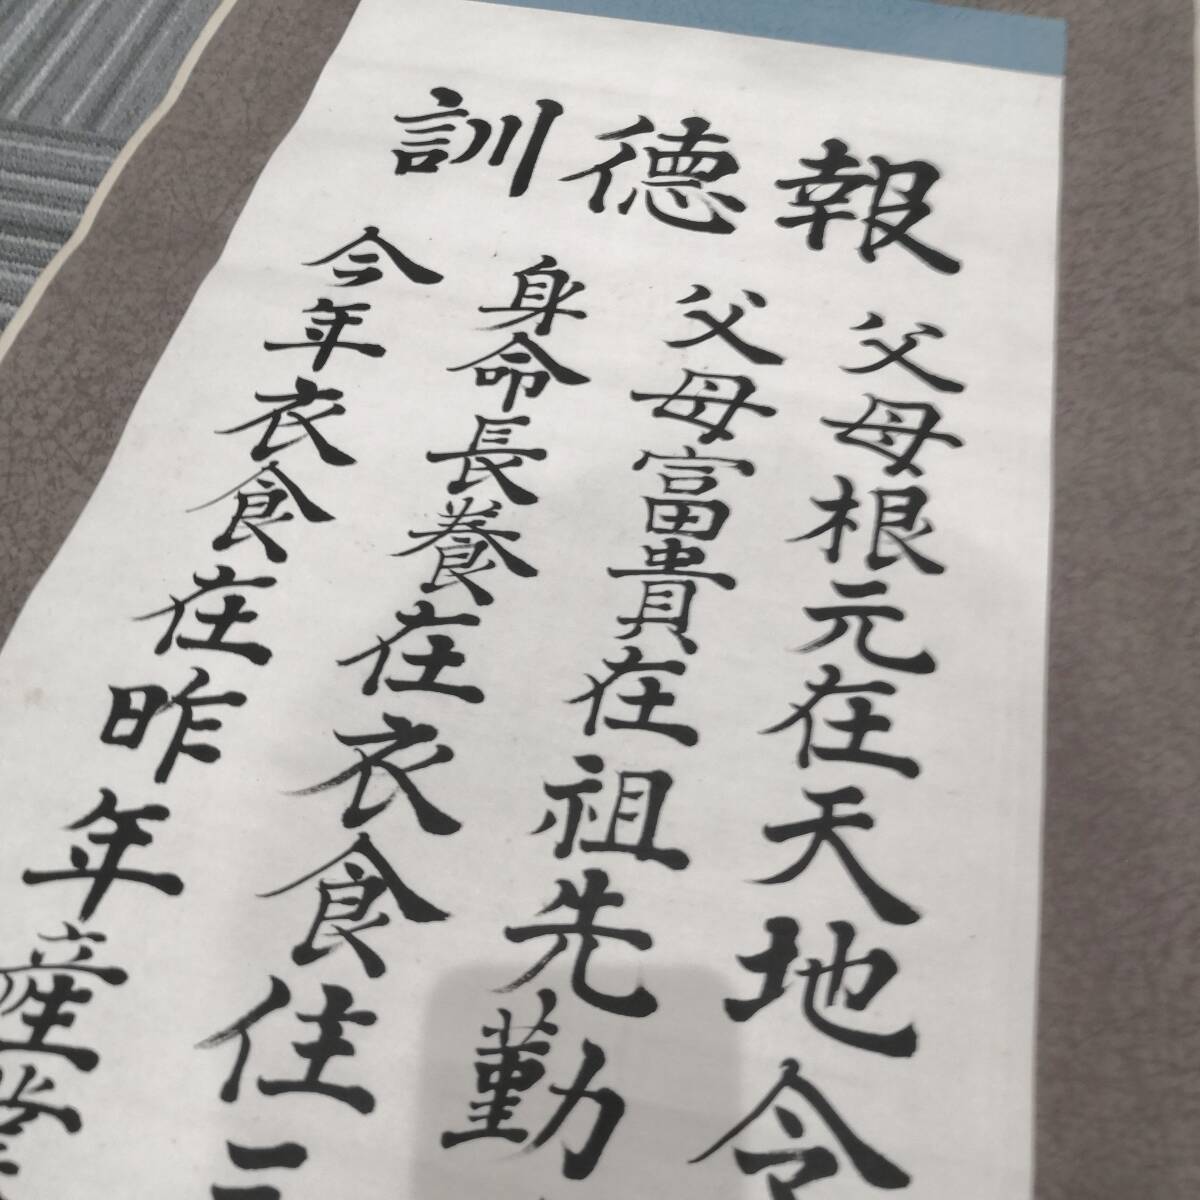 報徳訓
父母根元在天地令
父母富貴在祖先勤
身命長養在衣食住三
今年衣食在昨年産業